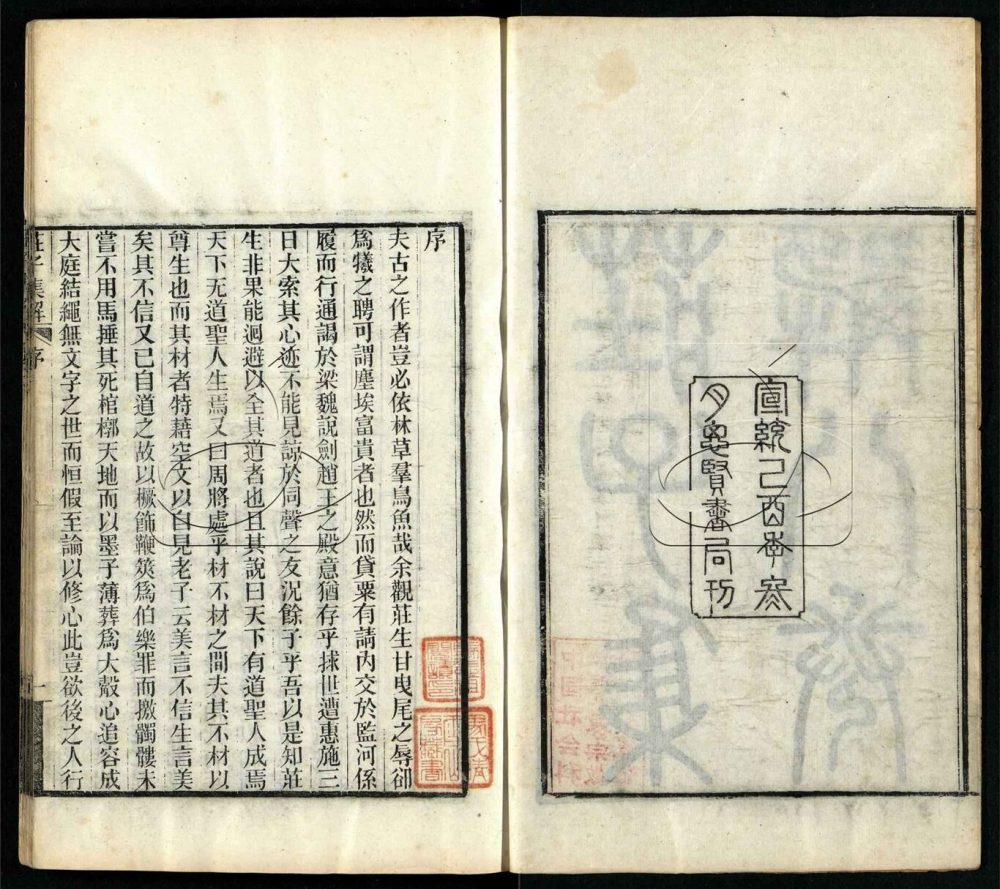 宣統己酉季冬
月思賢書局刊
序
夫古之作者豈必依林草羣鳥魚哉余觀莊生甘曳尾之辱卻
爲犧之聘可謂塵埃富貴者也然而貸粟有請內交於監河係
履而行通謁於梁魏說劍趙王之殿意猶存乎捄世遭惠施三
日大索其心迹不能見諒於同聲之友況餘子乎吾以是知莊
生非果能迴避以全其道者也且其說曰天下有道聖人成焉
天下无道聖人生焉又曰周將處乎材不材之閒夫其不材以
尊生也而其材者特藉空文以自見老子云美言不信生言美
矣其不信又已自道之故以橛飾鞭筴爲伯樂罪而撽髑髏未
嘗不用馬捶其死棺槨天地而以墨子薄葬爲大觳心追容成
大庭結繩無文字之世而恒假至論以修心此豈欲後之人行
莊子集解
序
一